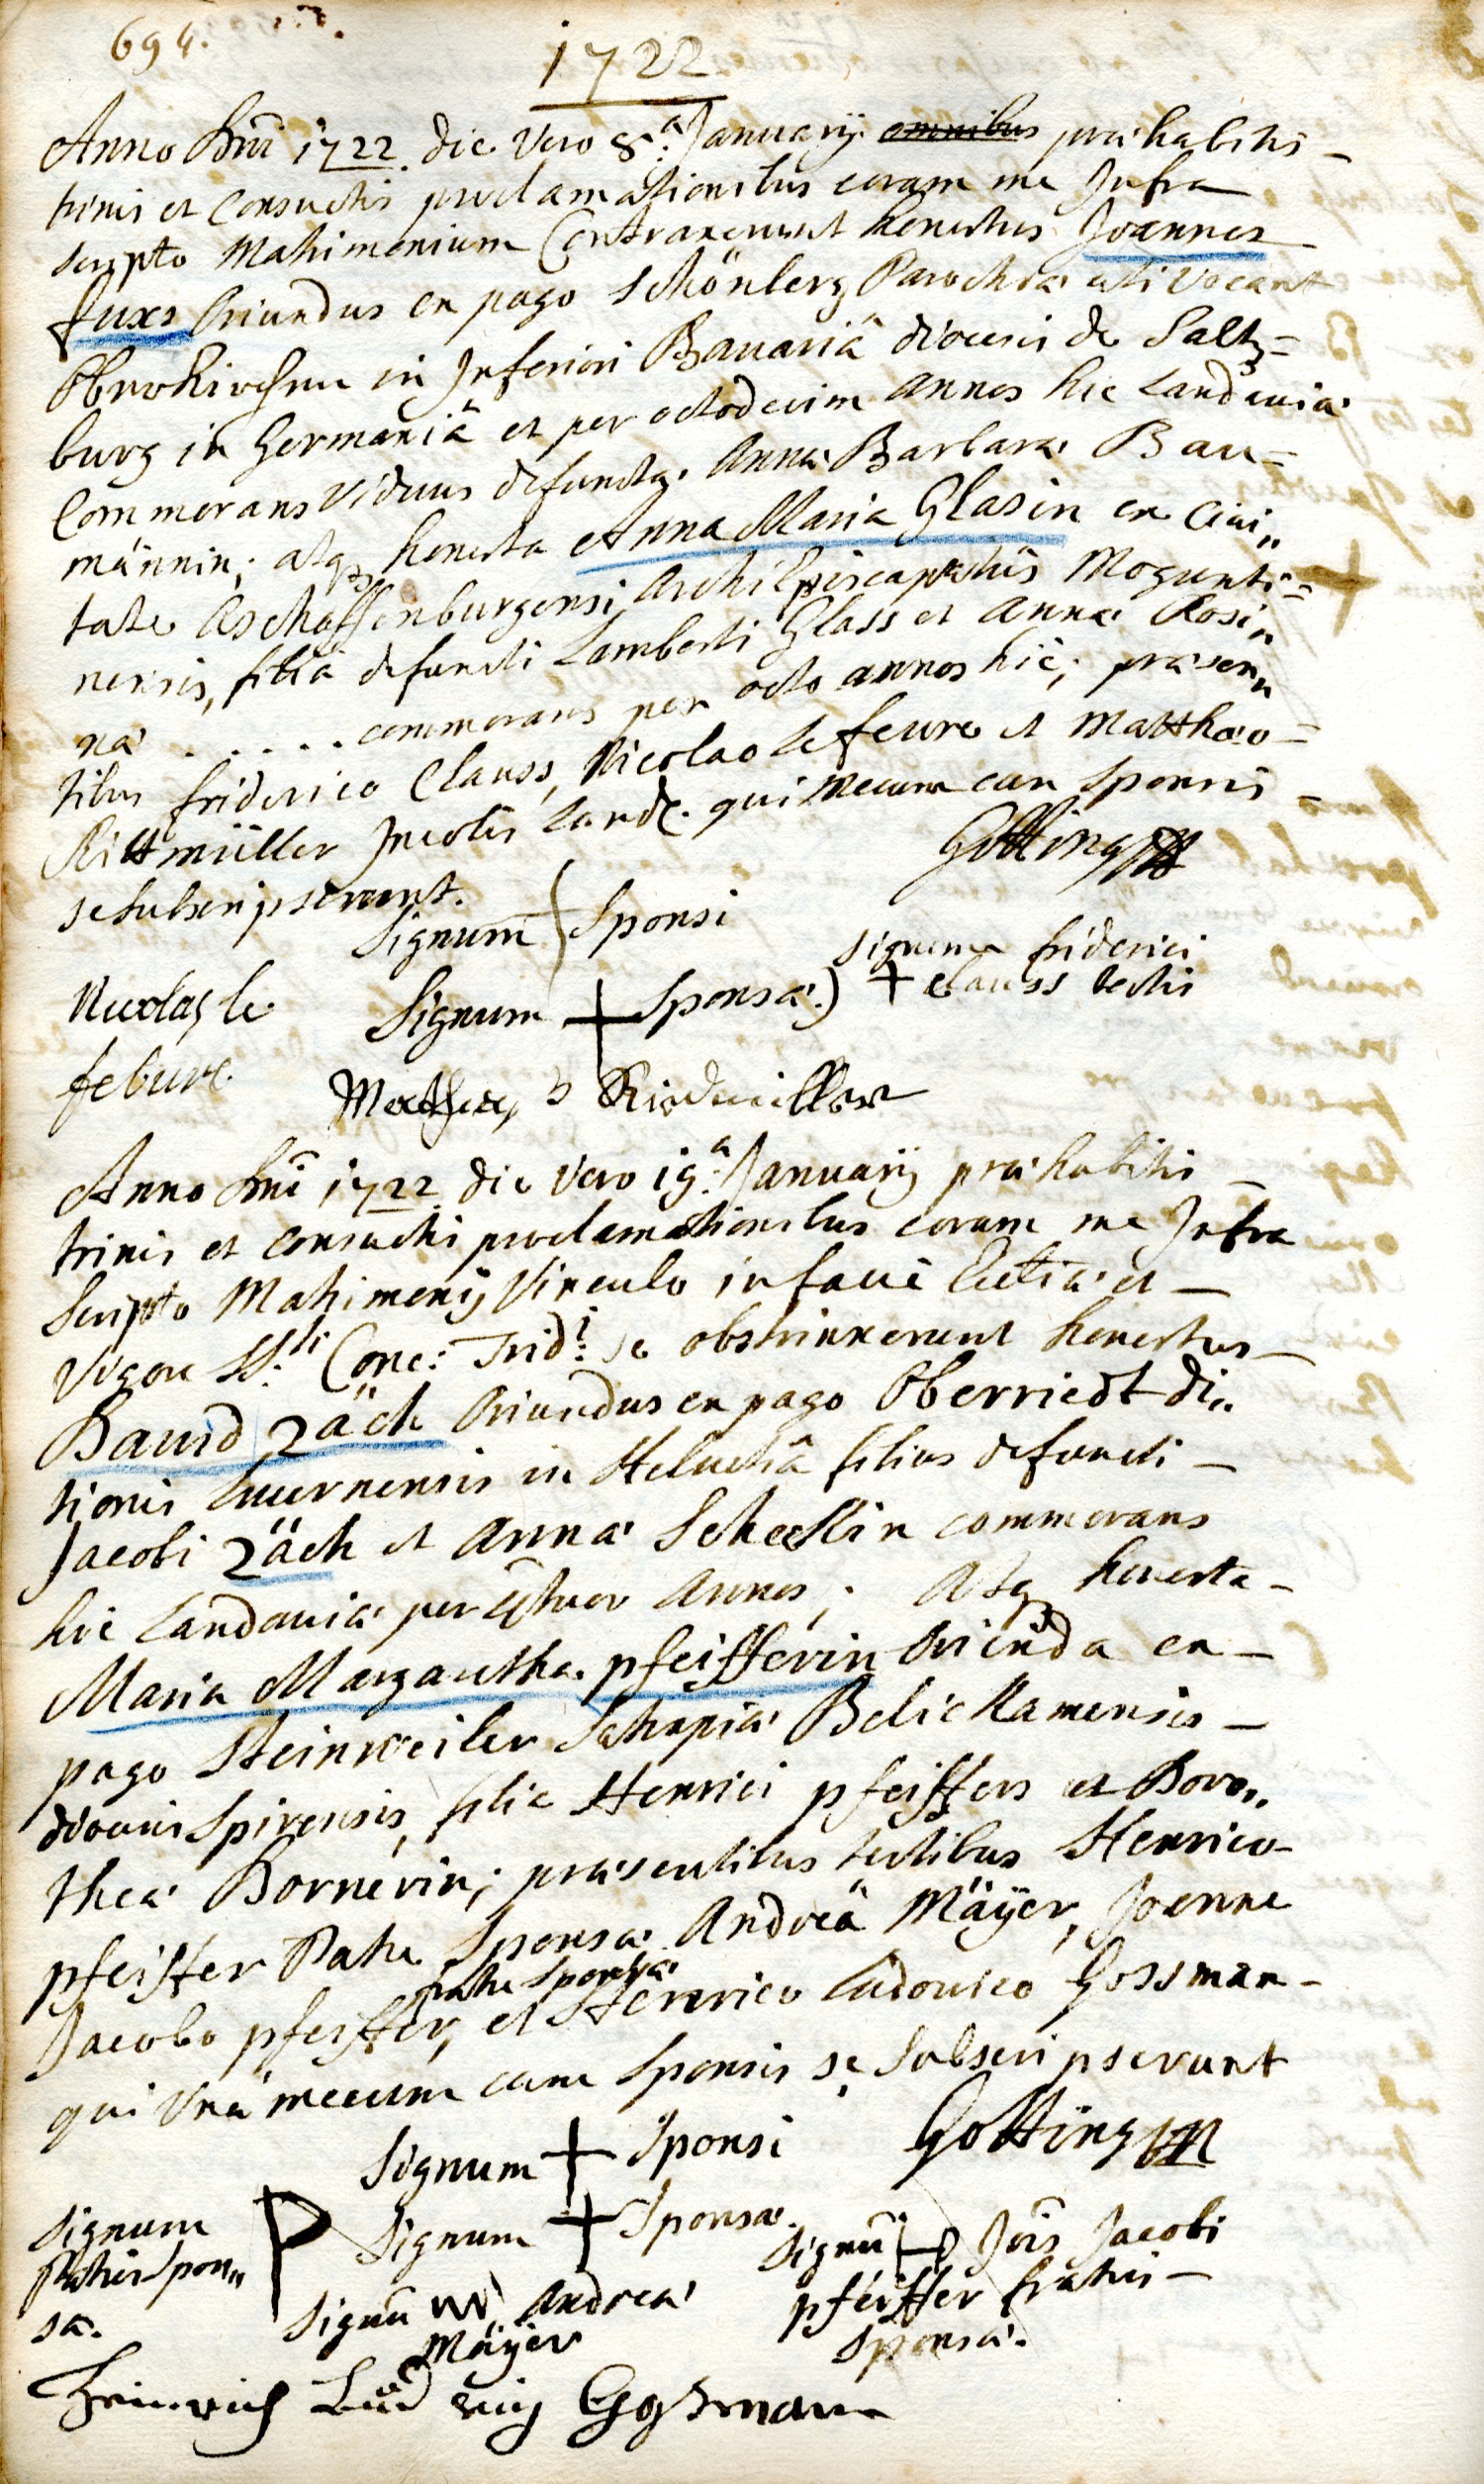 694.
1722
Anno Dni 1722 die vero 8.a Januarij omnibus præhabitis
trinis et consuetis proclamationibus coram me Infra
scripto Matrimonium Contraxerunt honestus Joannes
fuxs Oriundus ex pago Schönberg Parochiæ uti vocant
Obernkirchen in Inferiori Bavariâ diœcesis de Saltz=
burg in Germaniâ et per octodecim annos hic Landaviæ
Commorans Viduus defunctæ Annæ Barbaræ Bau=
männin; atq honesta Anna Maria Glasin ex Civi„
tate Aschaffenburgensi Archiepiscopatus Mogunti=
nensis, filia defuncti Lamberti Glass et Annæ Rosi„
næ ..... commorans per octo annos hîc; præsen„
tibus friderico Clauss, Nicolao le feure et Matthæo
Rittmüller Incolis Land. qui mecum cum Sponsis
se subscripserunt. Gotting
Signum Sponsi
Signum Sponsæ.) Signum friderici
+ Clauss testis
Nicolas le
febure.
Mathes Riedmiller
Anno Dni 1722 die vero 19.a Januarij præhabitis
trinis et consuetis proclamationibus coram me Infra
scripto Matrimonij Vinculo in facie Eccliæ et
vigore SS.ti Conc: Trid:i se obstrinxerunt honestus
David Zäch Oriundus ex pago Oberriedt di„
tionis Lucernensis in Helvetiâ filius defuncti
Jacobi Zäch et Annæ Scheckin commorans
hic Landaviæ per qtuor annos; Atq honesta
Maria Margaretha pfeifferin Oriunda ex
pago Steinweiler Satrapiæ Belickamensis
diœcesis Spirensis, filia Henrici pfeiffers et Doro„
theæ Bornerin; præsentibus testibus Henrico
pfeiffer Patre Sponsæ Andreâ Mäyer, Joanne
fratre Sponsæ
Jacobo pfeiffer, et Henrico Ludovico Gossman
qui Unâ mecum cum Sponsis se subscripserunt
Signum + Sponsi Gotting
Signum + Sponsæ.
Signum
Patris Spon„
sæ.
Signū Andreæ
Mäyer
Signū Jôis Jacobi
pfeiffer fratris
Sponsæ.
Heinrich Ludwig Goßman